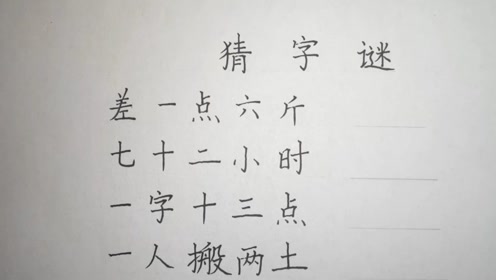 猜字谜
差一点六斤
七十二小时
一字十三点
一人搬两土